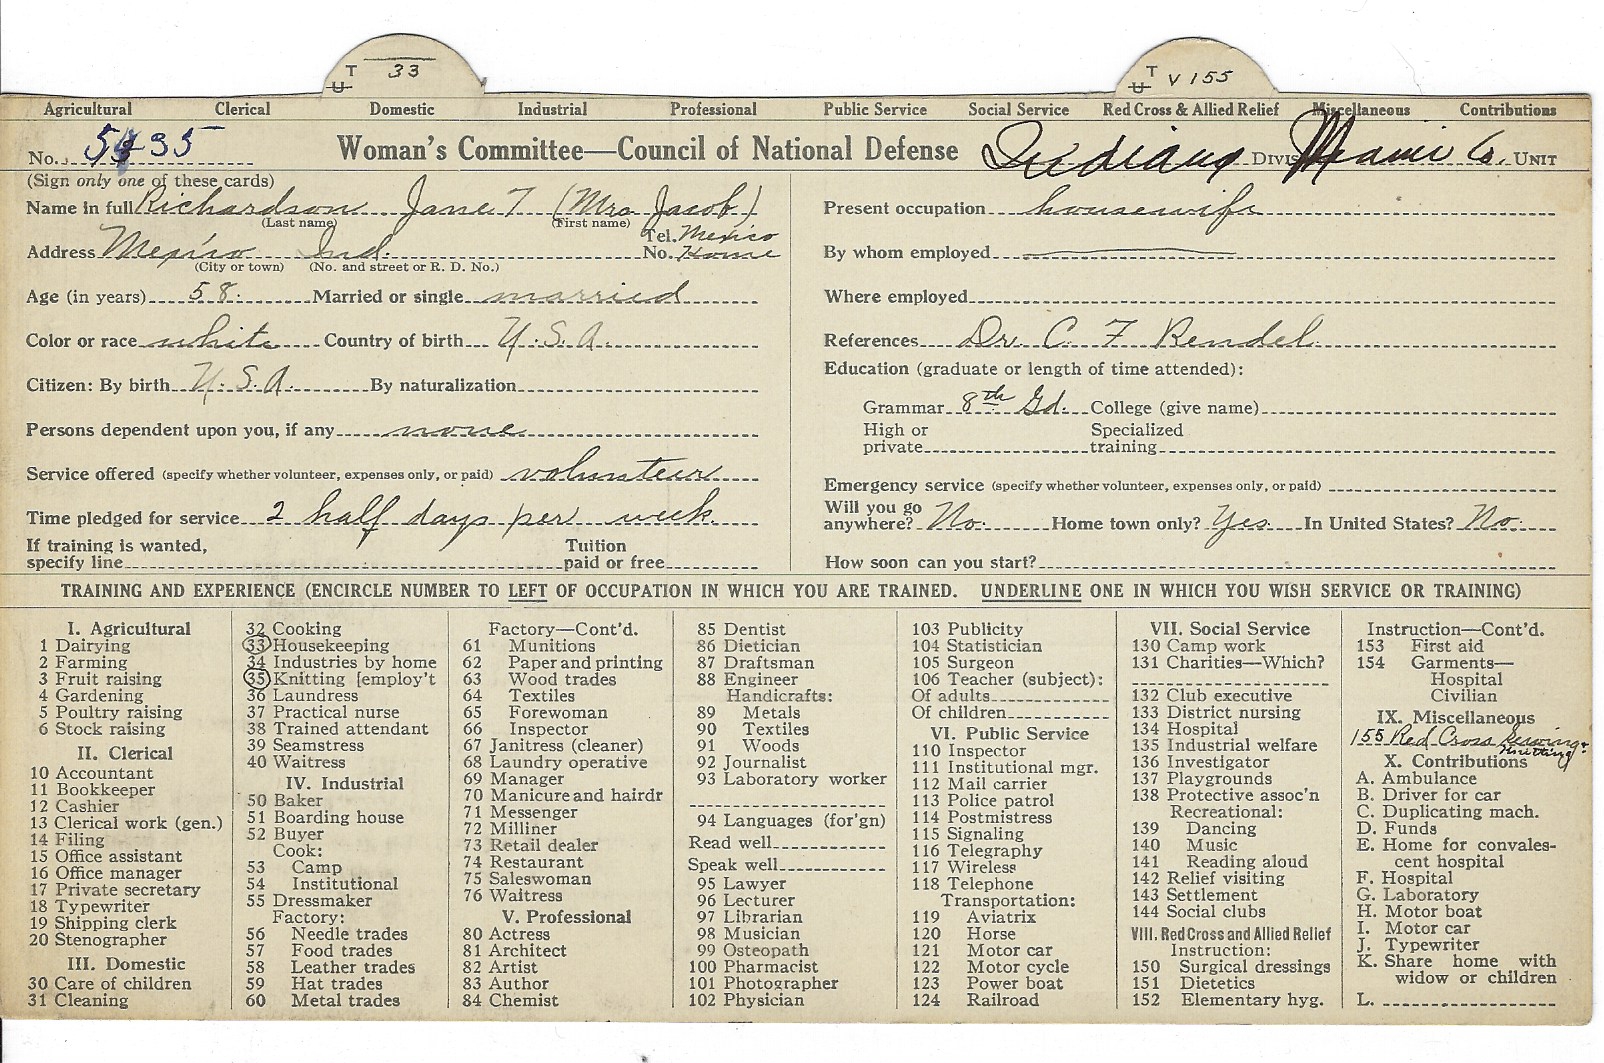 T U 33
T U V 155
Agricultural Clerical Domestic Industrial Professional Public Service Social Service Red Cross & Allied Relief Miscellaneous Contributions
No. 5435 Woman's Committee—Council of National Defense Indiana Division Miami Co. Unit
(Sign only one of these cards)
Name in full Richardson Jane T (Mrs Jacob)
(Last name) (First name)
Address Mexico Ind. Tel. No. Mexico Home
(City or town) (No. and street or R. D. No.)
Age (in years) 58. Married or single married
Color or race white Country of birth U.S.A.
Citizen: By birth U.S.A. By naturalization
Persons dependent upon you, if any none
Service offered (specify whether volunteer, expenses only, or paid) volunteer
Time pledged for service 2 half days per week
If training is wanted, specify line Tuition paid or free
Present occupation housewife
By whom employed
Where employed
References Dr. C. F. Rendel
Education (graduate or length of time attended):
Grammar 8th Gd. College (give name)
High or private Specialized training
Emergency service (specify whether volunteer, expenses only, or paid)
Will you go anywhere? No. Home town only? Yes. In United States? No.
How soon can you start?
TRAINING AND EXPERIENCE (ENCIRCLE NUMBER TO LEFT OF OCCUPATION IN WHICH YOU ARE TRAINED. UNDERLINE ONE IN WHICH YOU WISH SERVICE OR TRAINING)
I. Agricultural
1 Dairying
2 Farming
3 Fruit raising
4 Gardening
5 Poultry raising
6 Stock raising
II. Clerical
10 Accountant
11 Bookkeeper
12 Cashier
13 Clerical work (gen.)
14 Filing
15 Office assistant
16 Office manager
17 Private secretary
18 Typewriter
19 Shipping clerk
20 Stenographer
III. Domestic
30 Care of children
31 Cleaning
32 Cooking
33 Housekeeping
34 Industries by home
35 Knitting [employ't
36 Laundress
37 Practical nurse
38 Trained attendant
39 Seamstress
40 Waitress
IV. Industrial
50 Baker
51 Boarding house
52 Buyer
Cook:
53 Camp
54 Institutional
55 Dressmaker
Factory:
56 Needle trades
57 Food trades
58 Leather trades
59 Hat trades
60 Metal trades
Factory—Cont'd.
61 Munitions
62 Paper and printing
63 Wood trades
64 Textiles
65 Forewoman
66 Inspector
67 Janitress (cleaner)
68 Laundry operative
69 Manager
70 Manicure and hairdr
71 Messenger
72 Milliner
73 Retail dealer
74 Restaurant
75 Saleswoman
76 Waitress
V. Professional
80 Actress
81 Architect
82 Artist
83 Author
84 Chemist
85 Dentist
86 Dietician
87 Draftsman
88 Engineer
Handicrafts:
89 Metals
90 Textiles
91 Woods
92 Journalist
93 Laboratory worker
94 Languages (for'gn)
Read well
Speak well
95 Lawyer
96 Lecturer
97 Librarian
98 Musician
99 Osteopath
100 Pharmacist
101 Photographer
102 Physician
103 Publicity
104 Statistician
105 Surgeon
106 Teacher (subject):
Of adults
Of children
VI. Public Service
110 Inspector
111 Institutional mgr.
112 Mail carrier
113 Police patrol
114 Postmistress
115 Signaling
116 Telegraphy
117 Wireless
118 Telephone
Transportation:
119 Aviatrix
120 Horse
121 Motor car
122 Motor cycle
123 Power boat
124 Railroad
VII. Social Service
130 Camp work
131 Charities—Which?
132 Club executive
133 District nursing
134 Hospital
135 Industrial welfare
136 Investigator
137 Playgrounds
138 Protective assoc'n
Recreational:
139 Dancing
140 Music
141 Reading aloud
142 Relief visiting
143 Settlement
144 Social clubs
VIII. Red Cross and Allied Relief
Instruction:
150 Surgical dressings
151 Dietetics
152 Elementary hyg.
Instruction—Cont'd.
153 First aid
154 Garments—
Hospital
Civilian
IX. Miscellaneous
155 Red Cross sewing & knitting
X. Contributions
A. Ambulance
B. Driver for car
C. Duplicating mach.
D. Funds
E. Home for convales-
cent hospital
F. Hospital
G. Laboratory
H. Motor boat
I. Motor car
J. Typewriter
K. Share home with
widow or children
L.